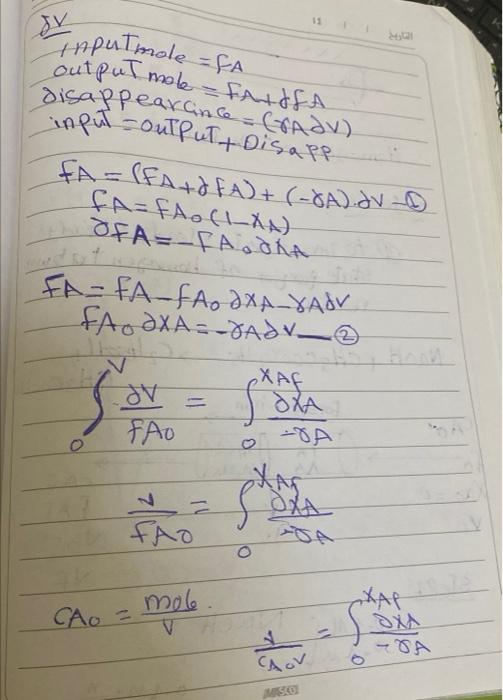 ∂V
inputmole = FA
output mole = FA+∂FA
disappearance = (-rA∂V)
input = outPut + Disapp
FA = (FA+∂FA) + (-rA).∂V -①
FA = FA0 (1-XA)
∂FA = -FA0 ∂XA
FA = FA - FA0 ∂XA - rA∂V
FA0 ∂XA = -rA∂V —②
∫₀^V ∂V/FA0 = ∫₀^XAf ∂XA/-rA
V/FA0 = ∫₀^XAf ∂XA/-rA
CA0 = mole/V .
V/CA0V = ∫₀^XAf ∂XA/-rA
MISCO